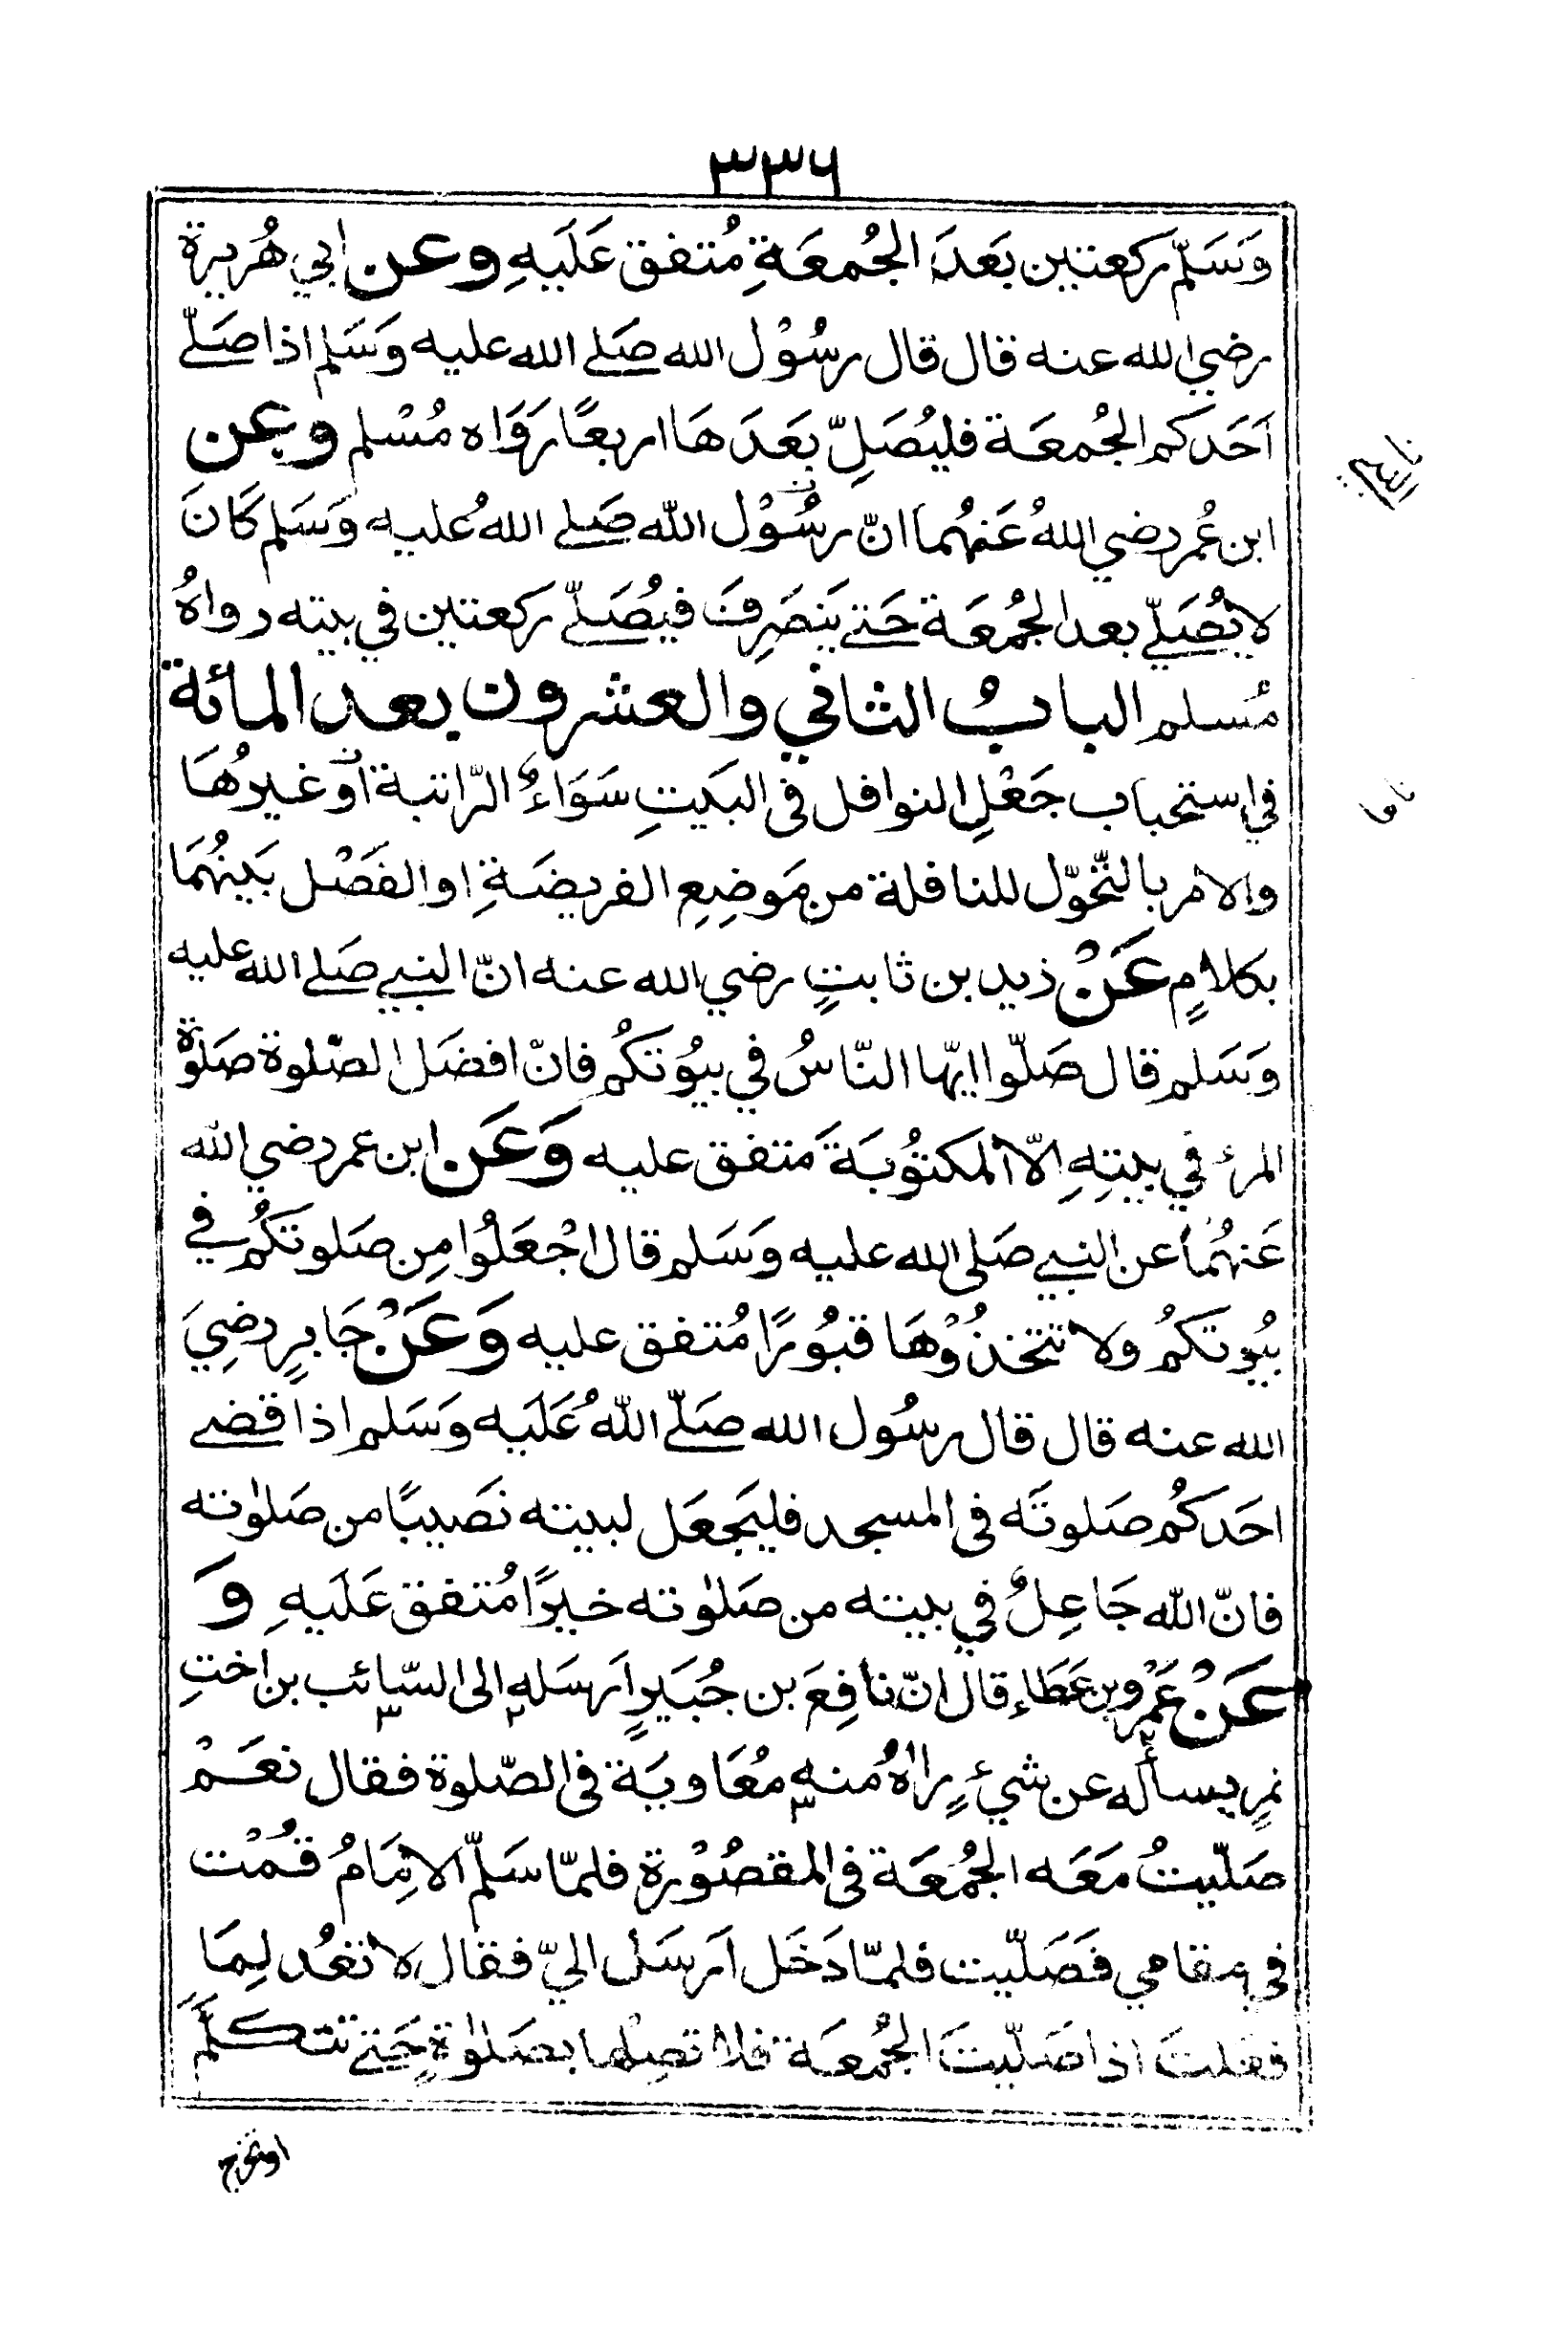 ٣٣٦
وَسَلّم ركعتين بَعدَ الجُمعَةِ مُتفق عَلَيهِ وعن ابي هُريرة
رضي الله عنه قال قال رسُوْل الله صَلے الله عليه وَسَلم اذا صَلّے
اَحَدكم الجُمعَة فليُصَلِّ بَعَدَهَا اربعًا رَوَاه مُسْلم وعن
ابن عُمر رضي اللهُ عَنهُما انّ رسُوْل الله صَلے اللهُ عليه وَسَلم كَانَ
لا يُصَلّے بعد الجُمُعَة حَتے يَنصَرِفَ فيُصَلّے ركعتين في بيته رواهُ
مُسلم البابُ الثاني والعشرون بعد المائة
في استحباب جَعْلِ النوافل فى البَيتِ سَوَاءٌ الرّاتبة اَوْ غيرُهَا
والامْر بالتّحوّل للنافلة من مَوضِعِ الفريضَةِ او الفَصْل بَينهُمَا
بكلامٍ عَنْ زيد بن ثابتٍ رضي الله عنه انّ النبي صَلے الله عليه
وَسَلم قال صَلّوا ايّها النّاسُ في بيُوتكُم فانّ افضَل الصّلوة صَلوٰة
المرءِ في بيتِهِ الّا المكتوُبَةَ متفق عليه وَعَن ابن عمر رضي الله
عَنهُمَا عن النبي صَلى الله عليه وَسَلم قال اجْعَلُوا مِن صَلوتكُم في
بيُوتكُم ولا تتخذُوْهَا قبُورًا مُتفق عليه وَعَنْ جَابرٍ رضِيَ
الله عنه قال قال رسُول الله صَلّے اللهُ عَلَيه وَسَلم اذا قضے
احَدكُم صَلوتَه فى المسجد فليَجعَل لبيته نَصيبًا من صَلوٰته
فانّ الله جَاعِلٌ في بيته من صَلوٰته خيرًا مُتفق عَلَيهِ وَ
عَنْ عَمْرو بن عَطَاء قال انّ نافِعَ بن جُبَيرٍ اَرسَله الى السّائب بن اختِ
نمرٍ يسأله عن شيءٍ راٰهُ منه مُعَاويَة فى الصّلوة فقال نعَمْ
صَلّيتُ مَعَه الجُمُعَة فى المقصُوْرة فلمّا سَلّم الامَامُ قُمْت
في مقامي فَصَلّيت فلمّا دَخَل اَرسَل اليّ فقال لا تعُد لِمَا
فعَلتَ اذا صَلّيتَ الجُمعَة فلا تصِلها بصَلوٰةٍ حَتے تتكلّمَ
او تخرج